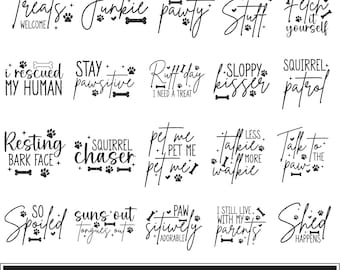 Treats
WELCOME
Junkie
pawty
Stuff
Fetch
it
yourself
i rescued
MY HUMAN
STAY
pawsitive
Ruff day
I NEED A TREAT
SLOPPY
kisser
SQUIRREL
patrol
Resting
BARK FACE
SQUIRREL
chaser
pet me
PET ME
pet me
LESS
talkie
MORE
walkie
Talk to
THE paw
SO
Spoiled
suns out
tongues out
PAW
sitively
ADORABLE
I STILL LIVE
with my
parents
Shed
HAPPENS